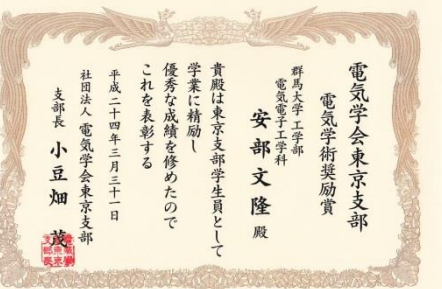 電気学会東京支部
電気学術奨励賞
群馬大学 工学部
電気電子工学科
安部文隆 殿
貴殿は東京支部学生員として
学業に精励し
優秀な成績を修めたので
これを表彰する
平成二十四年三月三十一日
社団法人 電気学会東京支部
支部長 小豆畑 茂